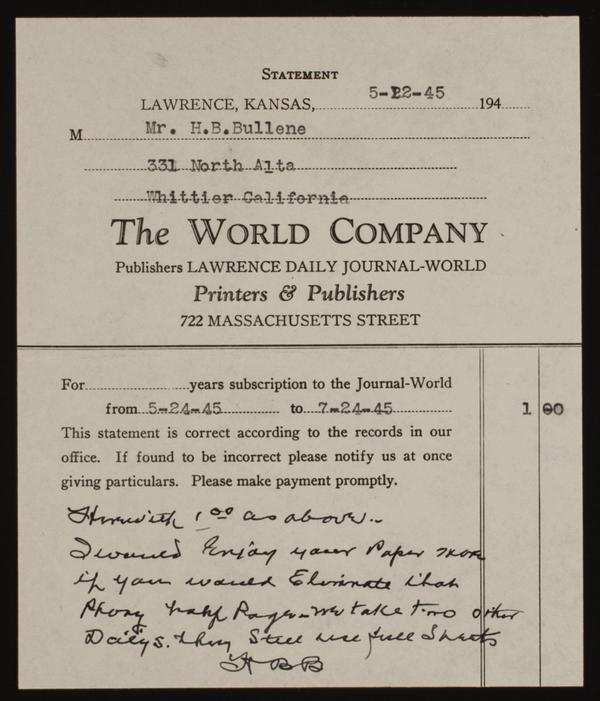 STATEMENT
LAWRENCE, KANSAS, 5-22-45 194
M Mr. H.B.Bullene
331 North Alta
Whittier California
The WORLD COMPANY
Publishers LAWRENCE DAILY JOURNAL-WORLD
Printers & Publishers
722 MASSACHUSETTS STREET
For years subscription to the Journal-World
from 5-24-45 to 7-24-45 1 00
This statement is correct according to the records in our
office. If found to be incorrect please notify us at once
giving particulars. Please make payment promptly.
Herewith 1 00 as above.-
I would Enjoy your Paper more
if you would Eliminate that
Phony half Page - We take two other
Dailys. they Still use full Sheets
HBB